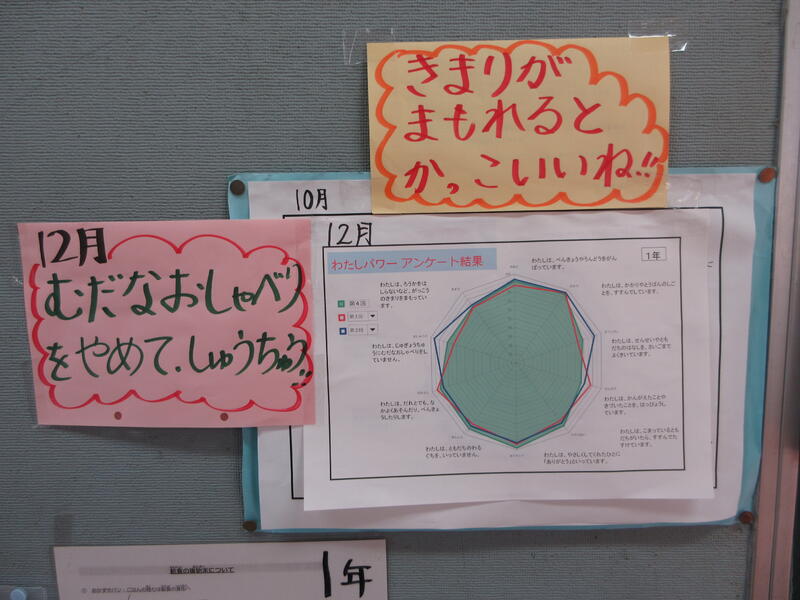 きまりが
まもれると
かっこいいね!!
10月
12月
むだなおしゃべり
をやめて、しゅうちゅう!!
12月
わたしパワー アンケート結果
1年
第4回
第1回
第2回
わたしは、べんきょうやうんどうをがん
ばっています。
わたしは、かかりやとうばんのしご
とを、すすんでしています。
わたしは、せんせいやとも
だちのはなしを、さいごまで
よくきいています。
わたしは、かんがえたことや
きづいたことを、はっぴょうし
ています。
わたしは、こまっているとも
だちがいたら、すすんでた
すけています。
わたしは、やさしくしてくれたひとに
「ありがとう」といっています。
わたしは、ともだちのわる
ぐちを、いっていません。
わたしは、だれとでも、な
かよくあそんだり、べんきょ
うしたりします。
わたしは、じゅぎょうちゅ
うにむだなおしゃべりをし
ていません。
わたしは、ろうかをは
しらないなど、がっこう
のきまりをまもってい
ます。
給食の後始末について
1年